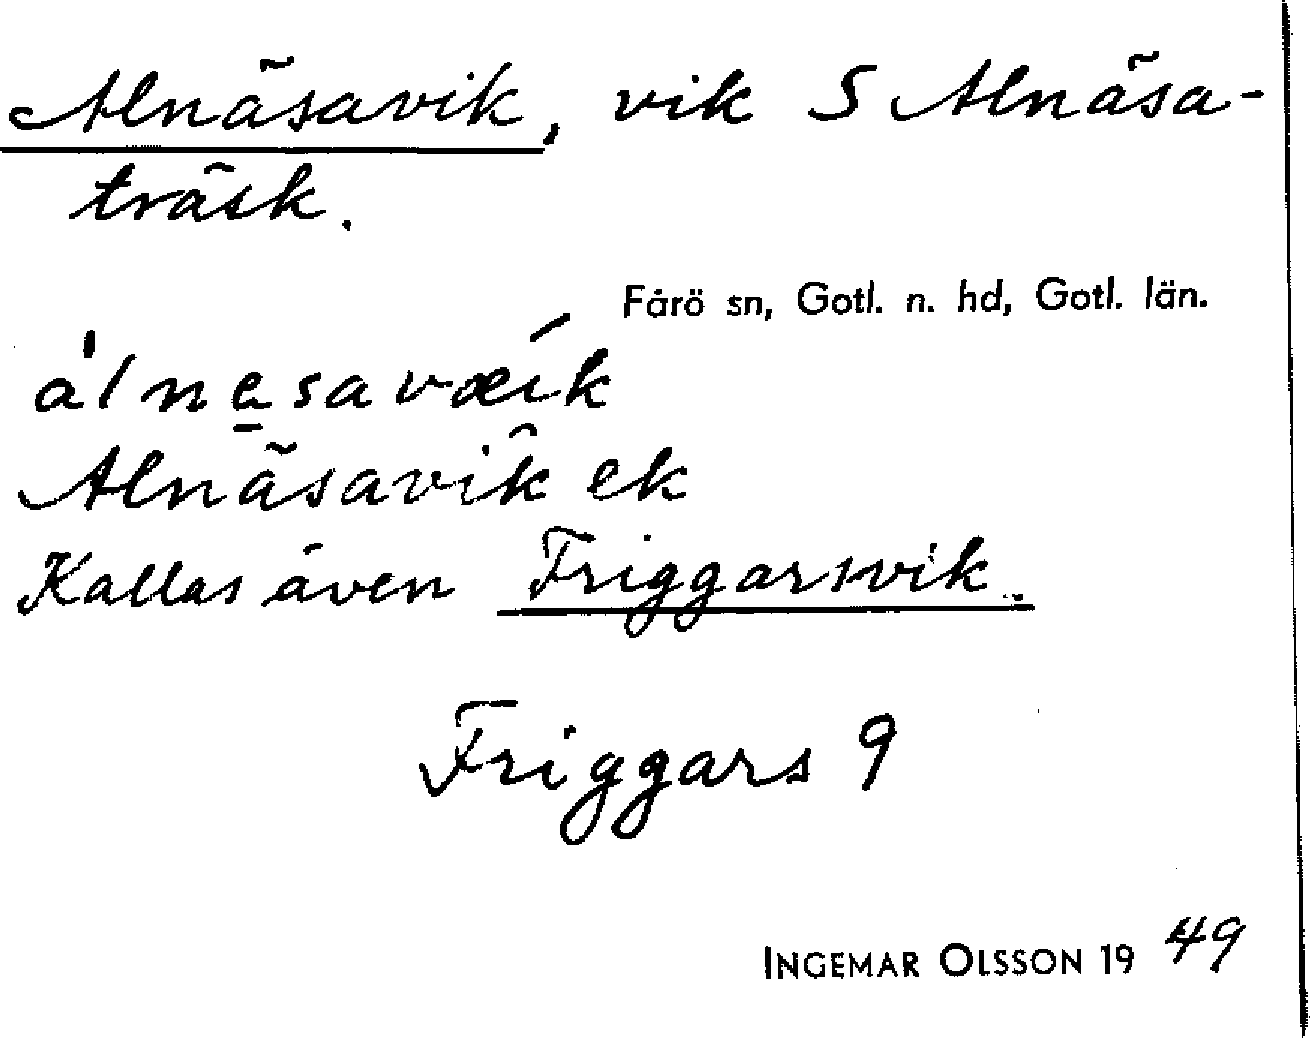 Alnäsavik, vik S Alnäsa-
träsk.
Fårö sn, Gotl. n. hd, Gotl. län.
a̍lne̱savæík
Alnäsavik ek
Kallas även Friggarsvik.
Friggars 9
INGEMAR OLSSON 19 49